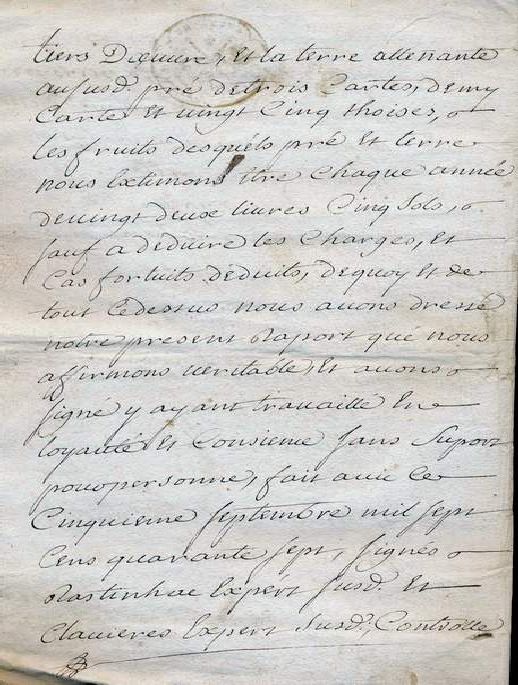 tiers Dœuvre, Et la terre attenante
au susd. pré de trois Cartes, demy
Carte Et vingt Cinq thoises,
les fruits desquels pré Et terre
nous Extimons Etre Chaque année
de vingt deux livres Cinq Sols,
sauf a deduire les Charges, Et
Cas fortuits deduits, dequoy Et de
tout Cedessus nous avons dressé
notre present Raport qué nous
affirmons veritable, Et avons
signé y ayant travaillé En
loyauté Et Consience sans Suport
pour personne, fait a ce
Cinquieme septembre mil sept
Cens quarante sept, signés
Rastinhac Expert susd. Et
Clavieres Expert susd., Controlle